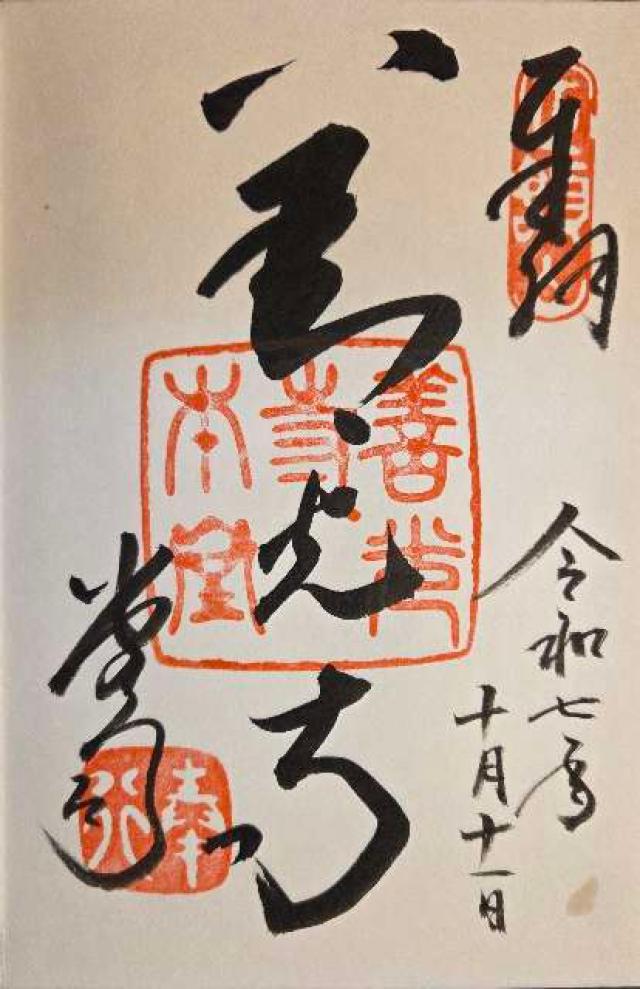 善光寺
善光
寺
本堂
令和七年
十月十一日
奉行